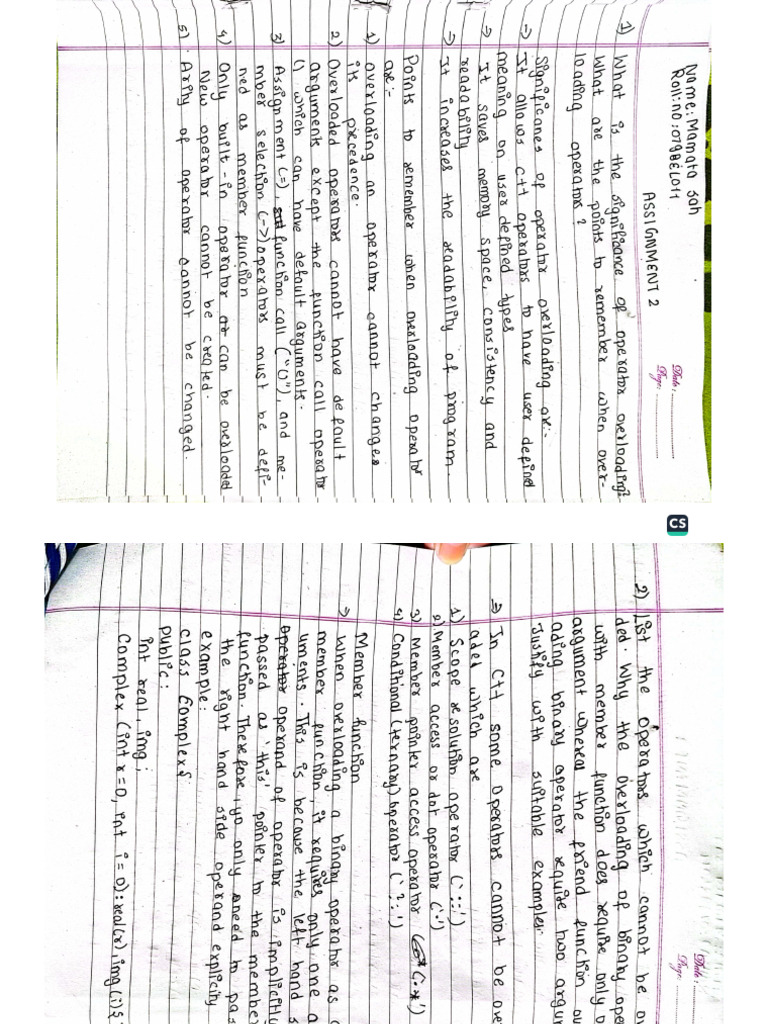 Name: Mamata Sah
Roll: no: 079BEL011
Date:
Page:
ASSIGNMENT 2
1) What is the significance of operator overloading?
What are the points to remember when over-
loading operators?
Significanes of operator overloading are:-
⇒ It allows C++ operators to have user defined
meaning on user defined types
⇒ It saves memory space, consistency and
readability
⇒ It increases the readability of program.
Points to remember when overloading operator
are:-
1) overloading an operator cannot change
its precedence.
2) Overloaded operators cannot have default
arguments except the function call operator
() which can have default arguments.
3) Assignment (=), function call ("()"), and me-
mber selection (->) operators must be defi-
ned as member function
4) Only built-in operator can be overloaded
New operator cannot be created.
5) Arity of operator cannot be changed.
CS
Date:
Page:
2) List the operators which cannot be
ded. Why the overloading of binary
with member function does require only
argument whereas the friend function
ading binary operator require two
Justify with suitable examples.
⇒ In C++ some operators cannot be
aded which are
1) Scope resolution operator ('::')
2) Member access or dot operator ('.')
3) Member pointer access operator ('.*')
4) Conditional (ternary) operator ('?:')
Member function
⇒ When overloading a binary operator as
member function, it requires only one
uments. This is because the left hand
operator operand of operator is implicitly
passed as 'this' pointer to the member
function. Therefore, yo only need to
the right hand side operand explicity
example:
class Complex{
public:
int real, img;
Complex (int r=0, int i=0):real(r) img(i){